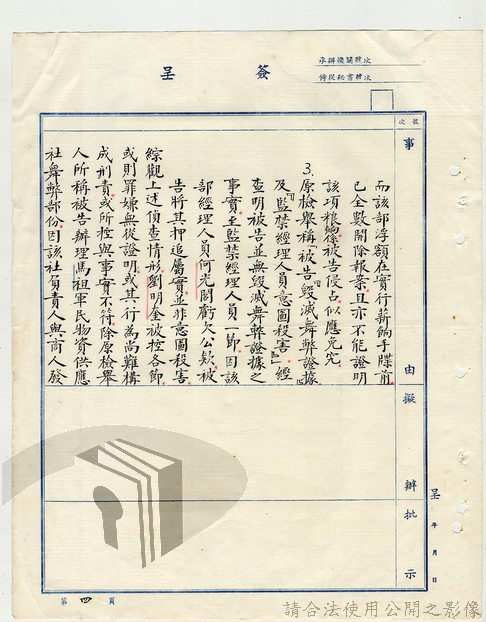 簽呈
承辦機關號次
侍從祕書號次
號次
事由
擬辦
批示
而該部浮額在實行薪餉手牒前
已全數開除報案且亦不能證明
該項粮餉係被告侵占似應免究
3.原檢舉稱「被告毀滅舞弊證據」
及「監禁經理人員意圖殺害」經
查明被告並無毀滅舞弊證據之
事實至監禁經理人員一節因該
部經理人員何光閣虧欠公欵被
告將其押追屬實並非意圖殺害
綜觀上述偵查情形劉明奎被控各節
或則罪嫌無從證明或其行為尚難構
成刑責或所控與事實不符除原檢舉
人所稱被告辦理馬祖軍民物資供應
社舞弊部份因該社負責人與商人發
呈 年 月 日
第四頁
請合法使用公開之影像